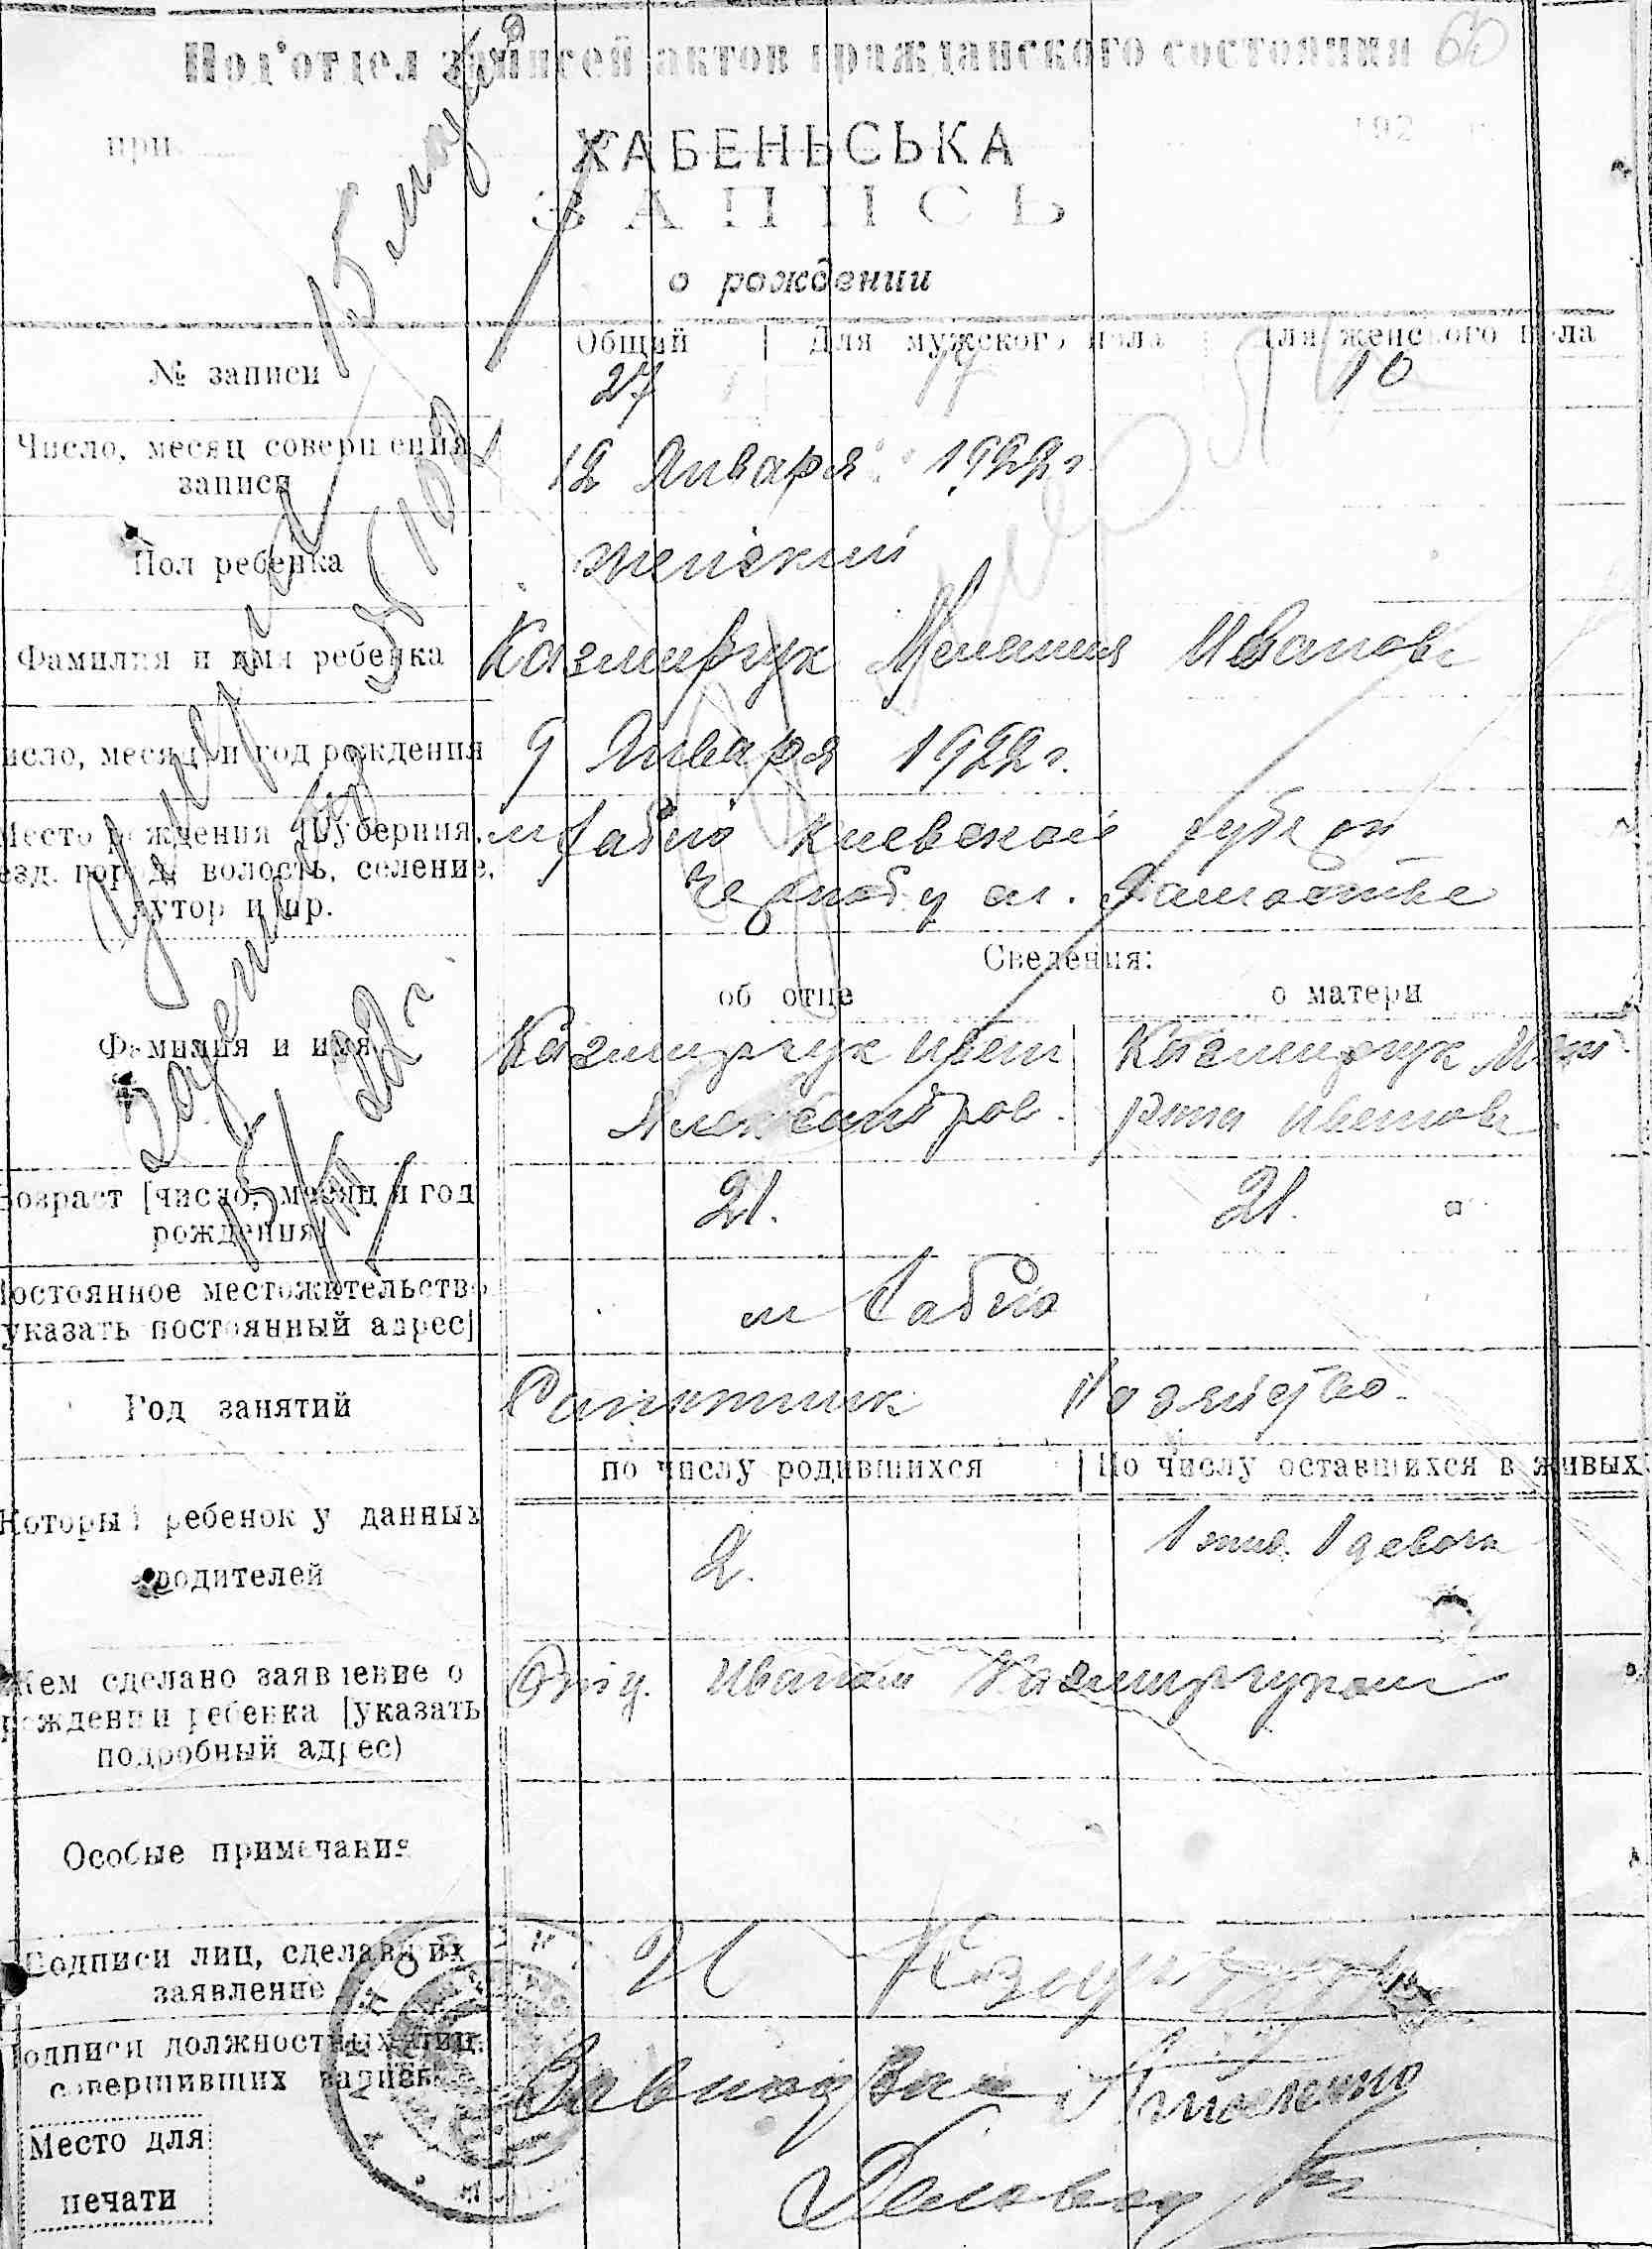 Под'отдел записей актов гражданского состояния 60
при 192
ХАБЕНЬСЬКА
ЗАПИСЬ
о рождении
Общий | Для мужского пола | Для женского пола
№ записи 27 17 10
Число, месяц совершения
записи 12 Января 1922 г.
Пол ребенка женский
Фамилия и имя ребенка Казмирчук Мелания Иванов
число, месяц и год рождения 9 Января 1922 г.
Место рождения [Губерния, м Хабно Киевской губ
езд. город, волость, селение,
хутор и пр.
Сведения:
об отце о матери
Фамилия и имя Казмирчук Иван Казмирчук
Александров.
Возраст [число, месяц и год 21. 21.
рождения]
Постоянное местожительство м Хабно
указать постоянный адрес]
Год занятий Хозяйство.
по числу родившихся | По числу оставшихся в живых
Который ребенок у данных 2. 1 жив. 1 девочк
родителей
Кем сделано заявление о Отц. Иваном Казмирчуком
рождении ребенка [указать
подробный адрес)
Особые примечания
Подписи лиц, сделавших И
заявление
Подписи должностных лиц,
совершивших запись
Место для
печати
Умерла 15 мая
15/V 22 г